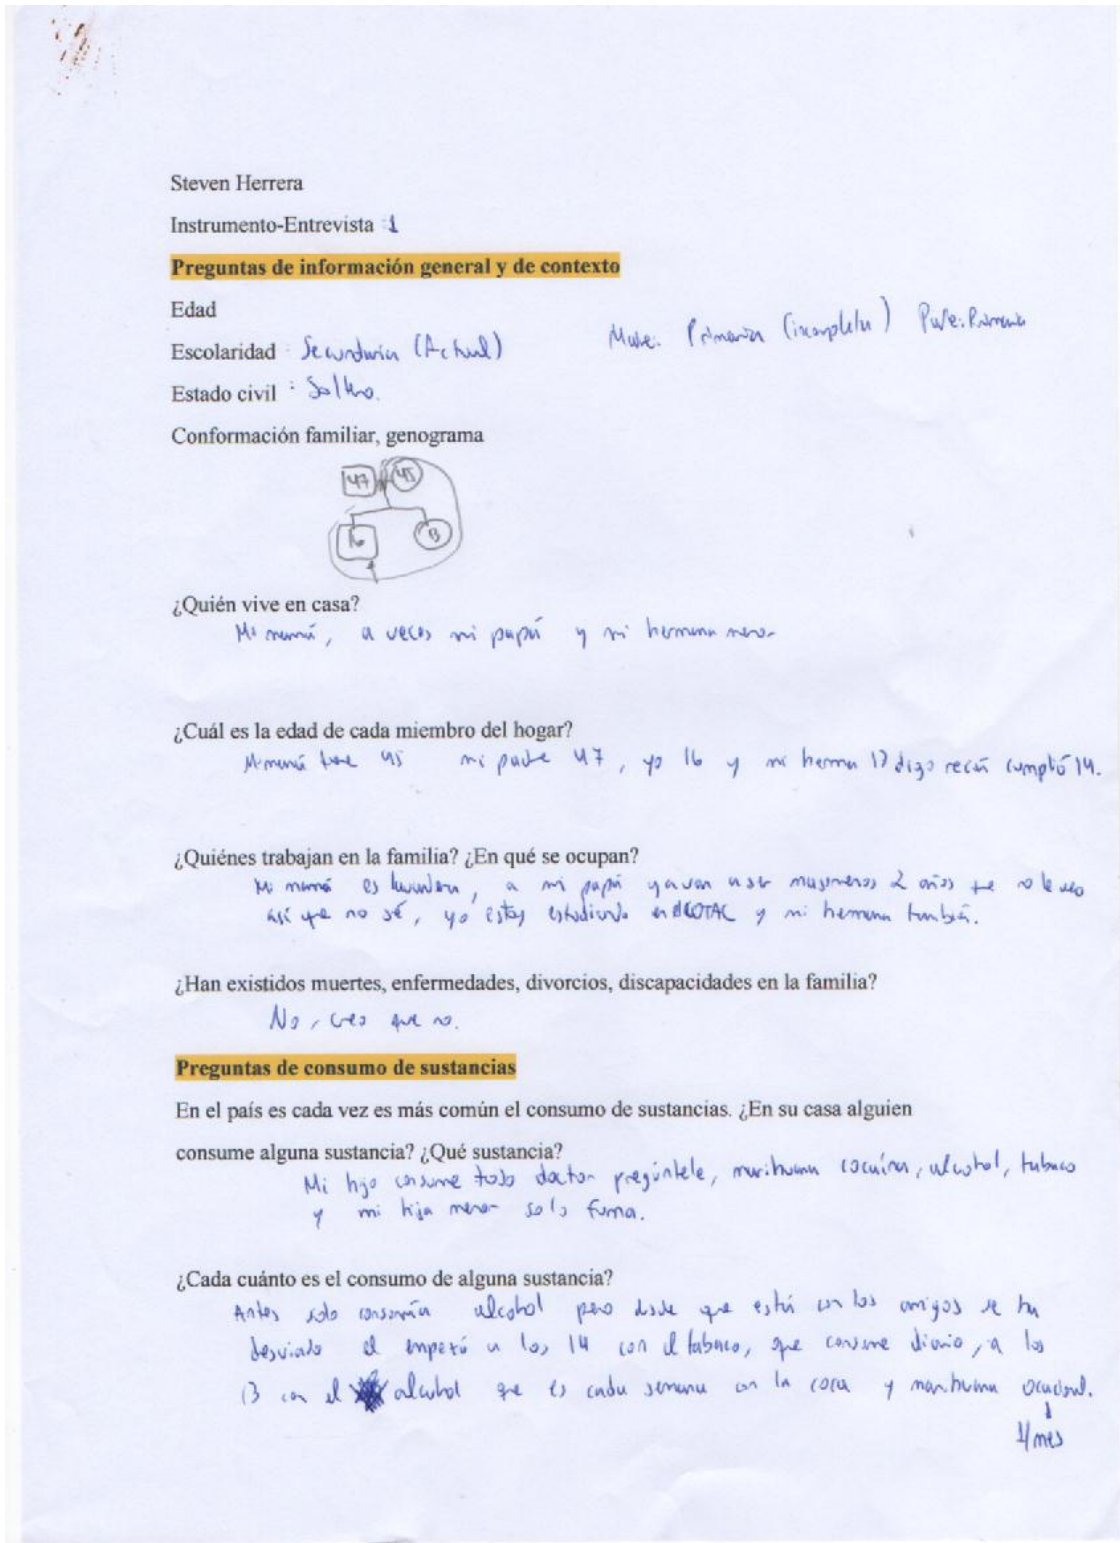 Steven Herrera
Instrumento-Entrevista : 1
Preguntas de información general y de contexto
Edad
Escolaridad : Secundaria (Actual) Madre: Primaria (incompleta) Padre: Primaria
Estado civil : Soltero.
Conformación familiar, genograma
47 45
16 13
¿Quién vive en casa?
Mi mamá, a veces mi papá y mi hermana menor
¿Cuál es la edad de cada miembro del hogar?
Mi mamá tiene 45 mi padre 47, yo 16 y mi herma 13 digo recién cumplió 14.
¿Quiénes trabajan en la familia? ¿En qué se ocupan?
Mi mamá es lavandera, a mi papá ya van a ser mas o menos 2 años que no le veo
así que no sé, yo estoy estudiando en el COTAC y mi hermana también.
¿Han existidos muertes, enfermedades, divorcios, discapacidades en la familia?
No, creo que no.
Preguntas de consumo de sustancias
En el país es cada vez es más común el consumo de sustancias. ¿En su casa alguien
consume alguna sustancia? ¿Qué sustancia?
Mi hijo consume todo doctor pregúntele, marihuana cocaína, alcohol, tabaco
y mi hija menor solo fuma.
¿Cada cuánto es el consumo de alguna sustancia?
Antes solo consumía alcohol pero desde que está con los amigos se ha
desviado el empezó a los 14 con el tabaco, que consume diario, a los
13 con el alcohol que es cada semana con la coca y marihuana ocacional.
1/mes